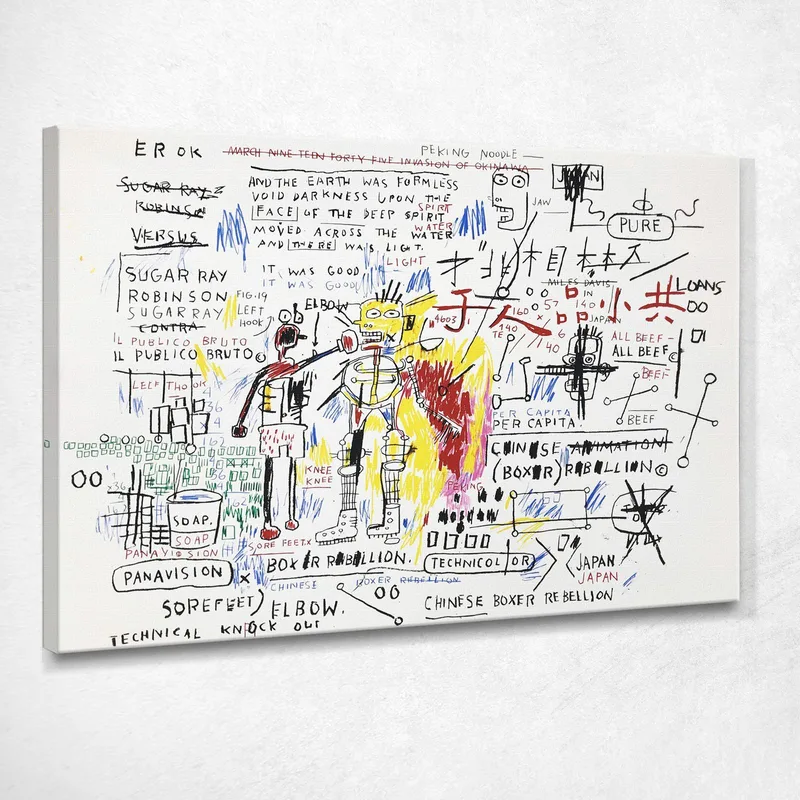 EROK
MARCH NINE TEEN FORTY FIVE INVASION OF OKINAWA
PEKING NOODLE
SUGAR RAY
ROBINSON
VERSUS
AND THE EARTH WAS FORMLESS
VOID DARKNESS UPON THE
FACE OF THE DEEP SPIRIT
SPIRIT
MOVED ACROSS THE WATER
WATER
AND THERE WAS LIGHT.
LIGHT
IT WAS GOOD
IT WAS GOOD
JAW
JAPAN
PURE
SUGAR RAY
ROBINSON
SUGAR RAY
CONTRA
FIG.19
LEFT
HOOK
IL PUBLICO BRUTO
IL PUBLICO BRUTO©
ELBOW
MILES DAVIS
LOANS
于人品小共
"4603"
160
57
IN
140
140
TE
6
1/40
JAPAN
ALL BEEF
ALL BEEF©
BEEF
BEEF
PER CAPITA
PER CAPITA.
CHINESE ANIMATION
(BOXER) REBELLION©
KNEE
KNEE
PEKING
SOAP.
SOAP
PANAVISION
PANAVISION
X
SORE FEET.X
BOXER REBELLION.
CHINESE BOXER REBELLION
TECHNICOLOR
JAPAN
JAPAN
SOREFEET) ELBOW.
CHINESE BOXER REBELLION
TECHNICAL KNOCK OUT